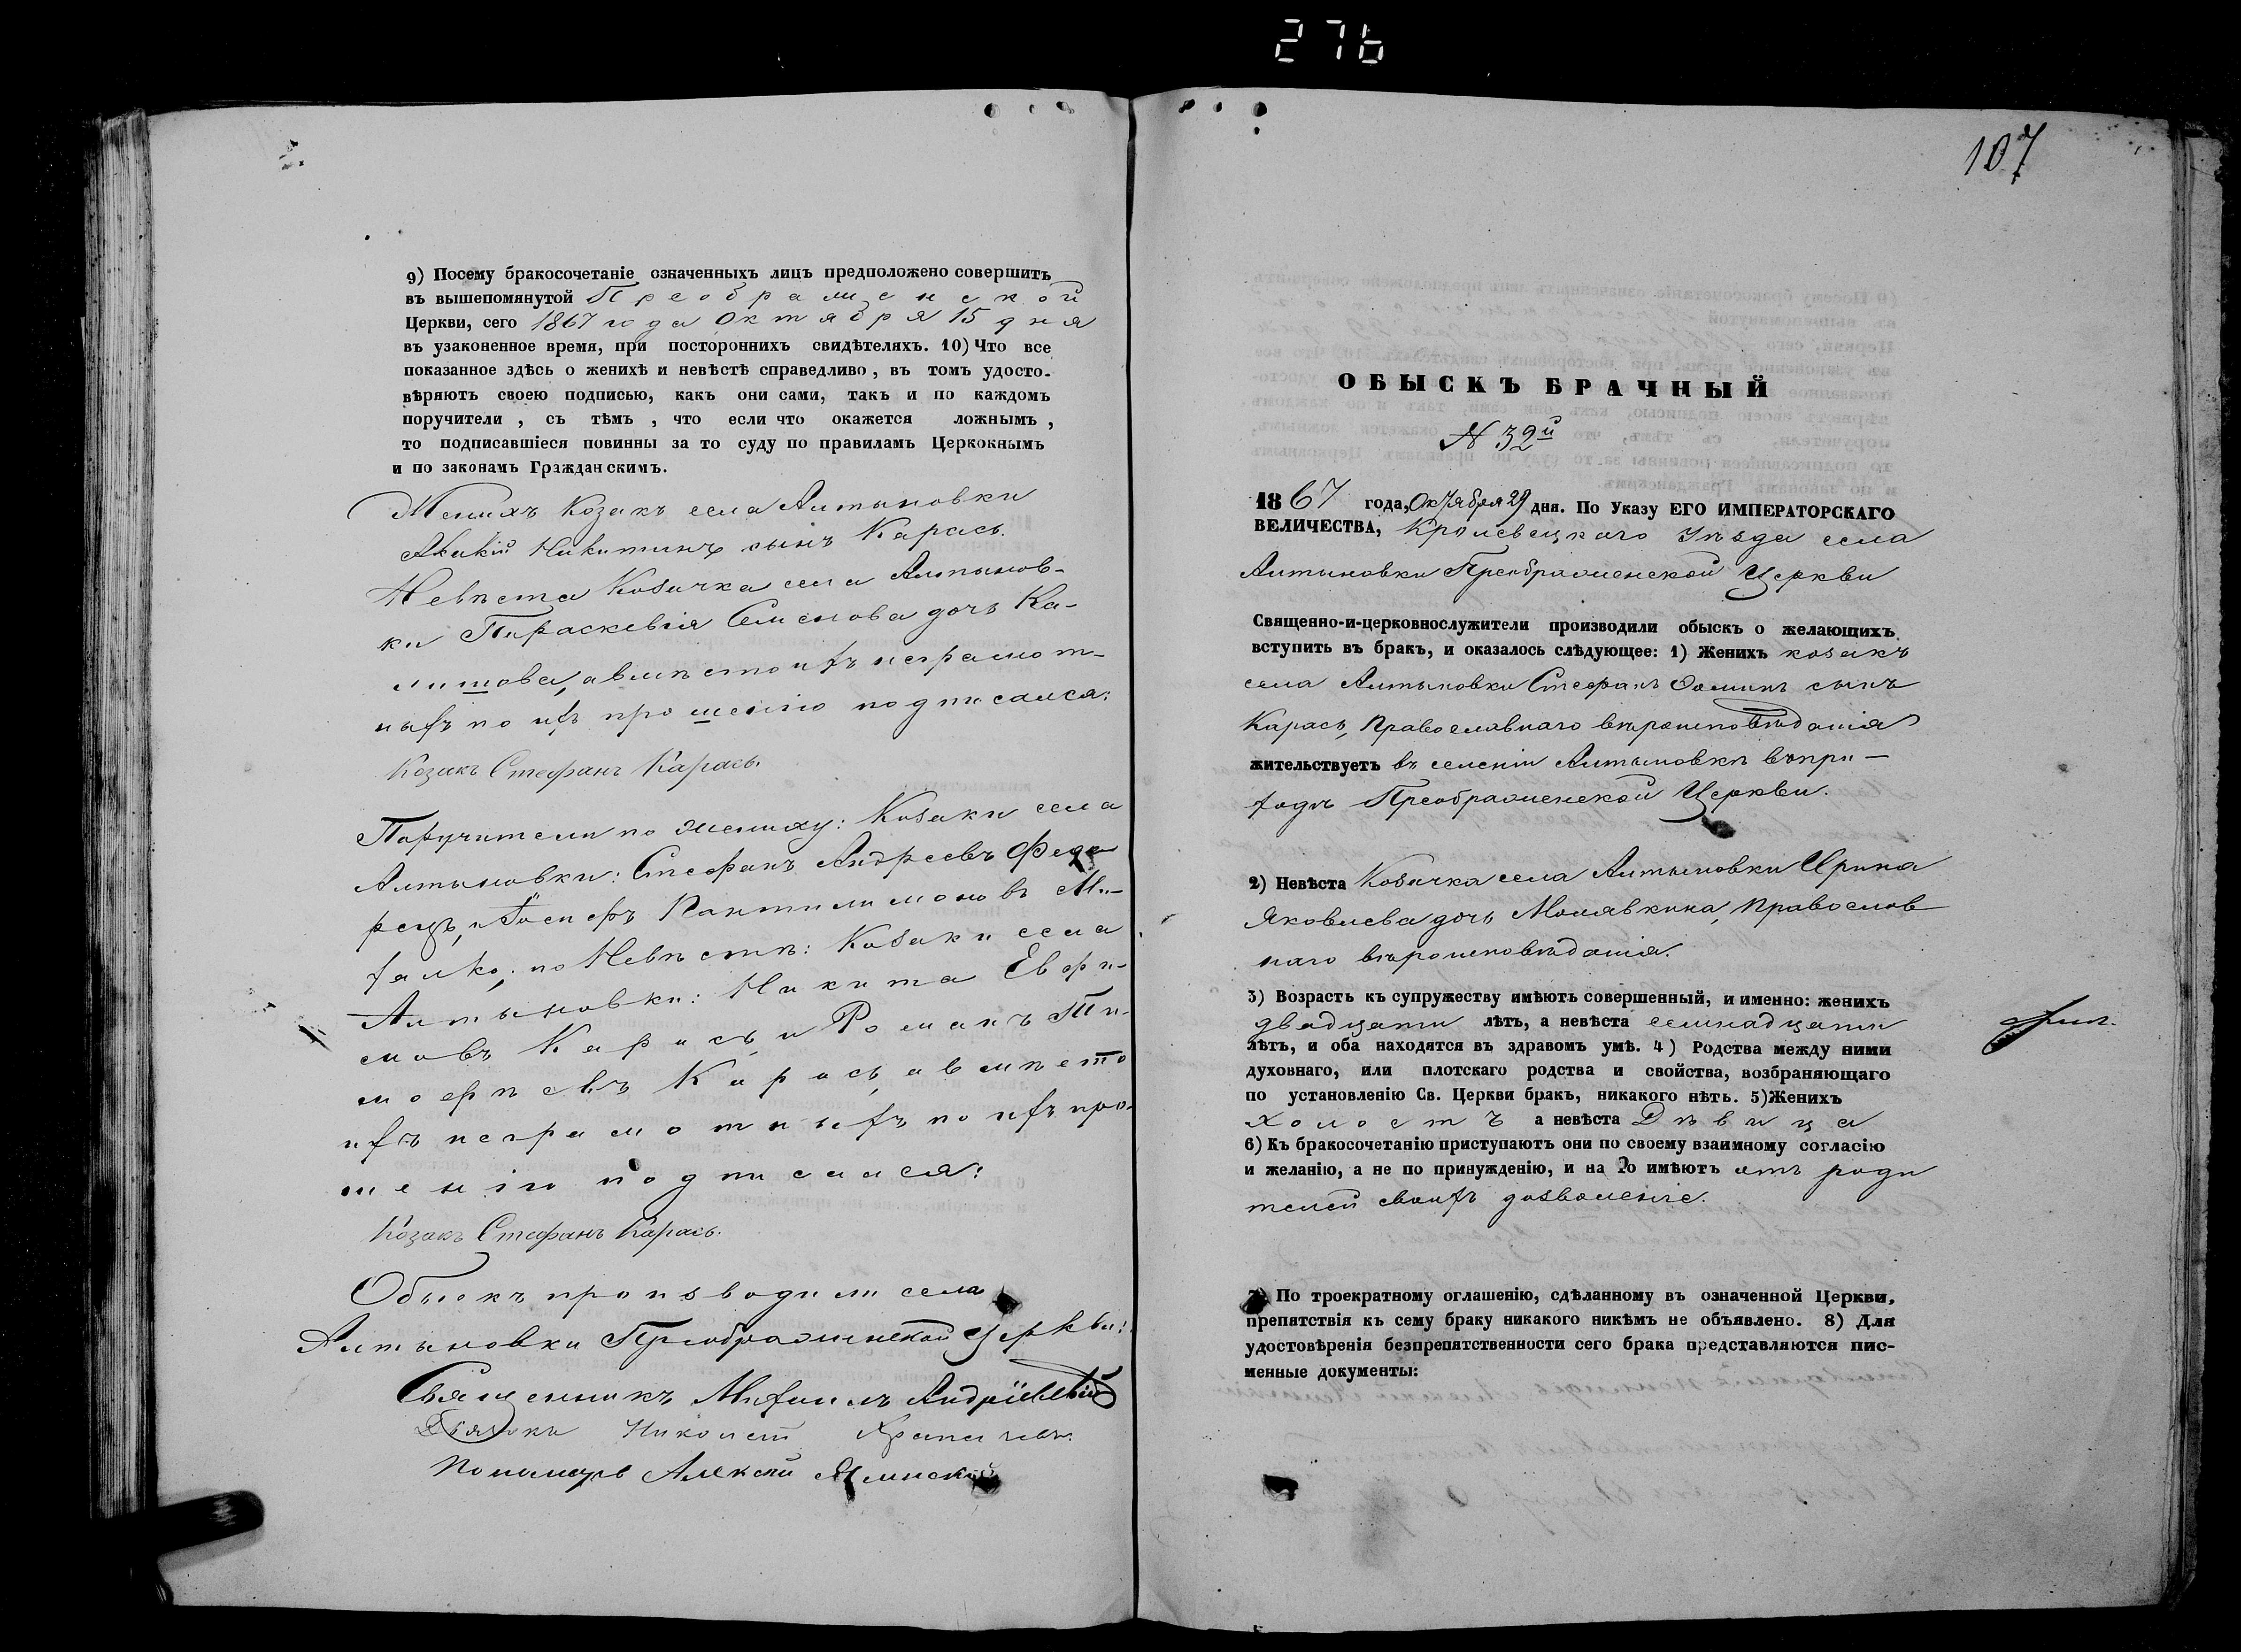 276
9) Посему бракосочетаніе означенныхъ лицъ предположено совершить
въ вышепомянутой Преображенской
Церкви, сего 1867 года Октября 15 дня
въ узаконенное время, при постороннихъ свидѣтеляхъ. 10) Что все
показанное здѣсь о женихѣ и невѣстѣ справедливо, въ томъ удосто-
вѣряютъ своею подписью, какъ они сами, такъ и по каждомъ
поручители, съ тѣмъ, что если что окажется ложнымъ,
то подписавшіеся повинны за то суду по правиламъ Церкокнымъ
и по законамъ Гражданскимъ.
Женихъ Козакъ села Алтыновки
Никитинъ сынъ Карась.
Невѣста Козачка села Алтынов-
ки Параскевія Семенова дочь Ка-
а вмѣсто ихъ неграмот-
ныхъ по ихъ прошенію подписался:
Козакъ Стефанъ Карась.
Поручители по жениху: Козаки села
Алтыновки: Стефанъ Андреевъ Феде-
рецъ, и Іосифъ Пантилимоновъ Ми-
халко; по Невѣстѣ: Козаки села
Алтыновки: Никита Евфи-
мовъ Карась, и Романъ Ти-
мофѣевъ Карась, а вмѣсто
ихъ неграмотныхъ по ихъ про-
шенію подписался:
Козакъ Стефанъ Карась.
Обыскъ производили села
Алтыновки Преображенской Церкви:
Священникъ Михаилъ Андріевскій
Дьячокъ Николай
Пономарь Алексѣй
107
ОБЫСКЪ БРАЧНЫЙ
N 32й
1867 года, Октября 29 дня. По Указу ЕГО ИМПЕРАТОРСКАГО
ВЕЛИЧЕСТВА, Кролевецкаго Уѣзда села
Алтыновки Преображенской Церкви
Священно-и-церковнослужители производили обыскъ о желающихъ
вступить въ бракъ, и оказалось слѣдующее: 1) Женихъ козакъ
села Алтыновки Стефанъ Ѳоминъ сынъ
Карась, Православнаго вѣроисповѣданія
жительствуетъ въ селеніи Алтыновкѣ въ при-
ходѣ Преображенской Церкви.
2) Невѣста Козачка села Алтыновки Ирина
Яковлева дочь Молявкина, Православ
наго вѣроисповѣданія.
3) Возрастъ къ супружеству имѣютъ совершенный, и именно: женихъ
двадцати лѣтъ, а невѣста семнадцати
лѣтъ, и оба находятся въ здравомъ умѣ. 4) Родства между ними
духовнаго, или плотскаго родства и свойства, возбраняющаго
по установленію Св. Церкви бракъ, никакого нѣтъ. 5) Женихъ
холостъ а невѣста Дѣвица
6) Къ бракосочетанію приступаютъ они по своему взаимному согласію
и желанію, а не по принужденію, и на то имѣютъ отъ роди
телей своихъ дозволеніе.
7) По троекратному оглашенію, сдѣланному въ означенной Церкви,
препятствія къ сему браку никакого никѣмъ не объявлено. 8) Для
удостовѣренія безпрепятственности сего брака представляются пис-
менные документы: